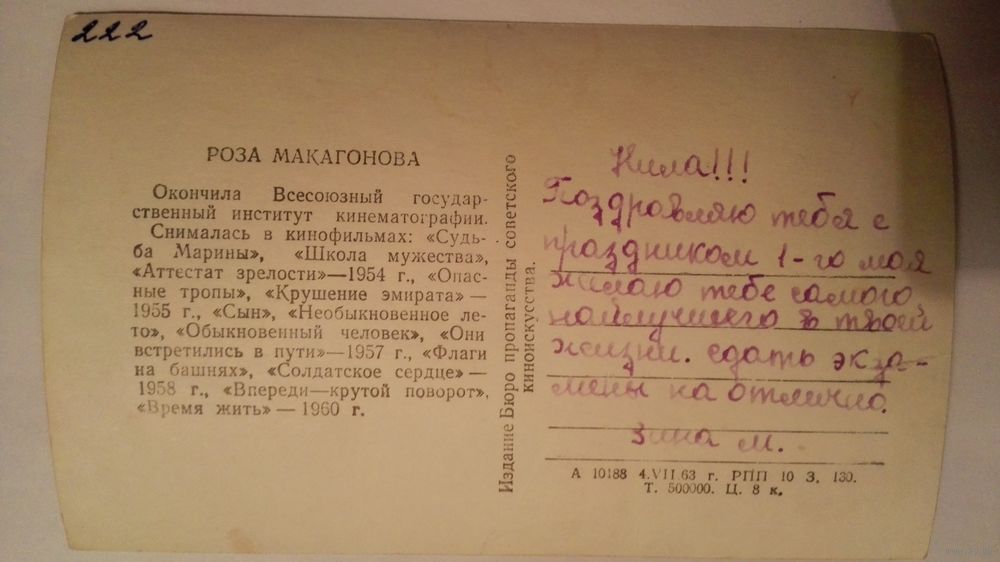 222
РОЗА МАКАГОНОВА
Окончила Всесоюзный государ-
ственный институт кинематографии.
Снималась в кинофильмах: «Судь-
ба Марины», «Школа мужества»,
«Аттестат зрелости»—1954 г., «Опас-
ные тропы», «Крушение эмирата» —
1955 г., «Сын», «Необыкновенное ле-
то», «Обыкновенный человек», «Они
встретились в пути»—1957 г., «Флаги
на башнях», «Солдатское сердце» —
1958 г., «Впереди—крутой поворот»,
«Время жить» — 1960 г.
Издание Бюро пропаганды советского
киноискусства.
Нила!!!
Поздровляю тебя с
праздником 1-го мая
желаю тебе самого
найлучшего в твоей
жизни. сдать экза-
мены на отлично.
Зина М.
А 10188 4.VII.63 г. РПП 10 З. 130.
Т. 500000. Ц. 8 к.